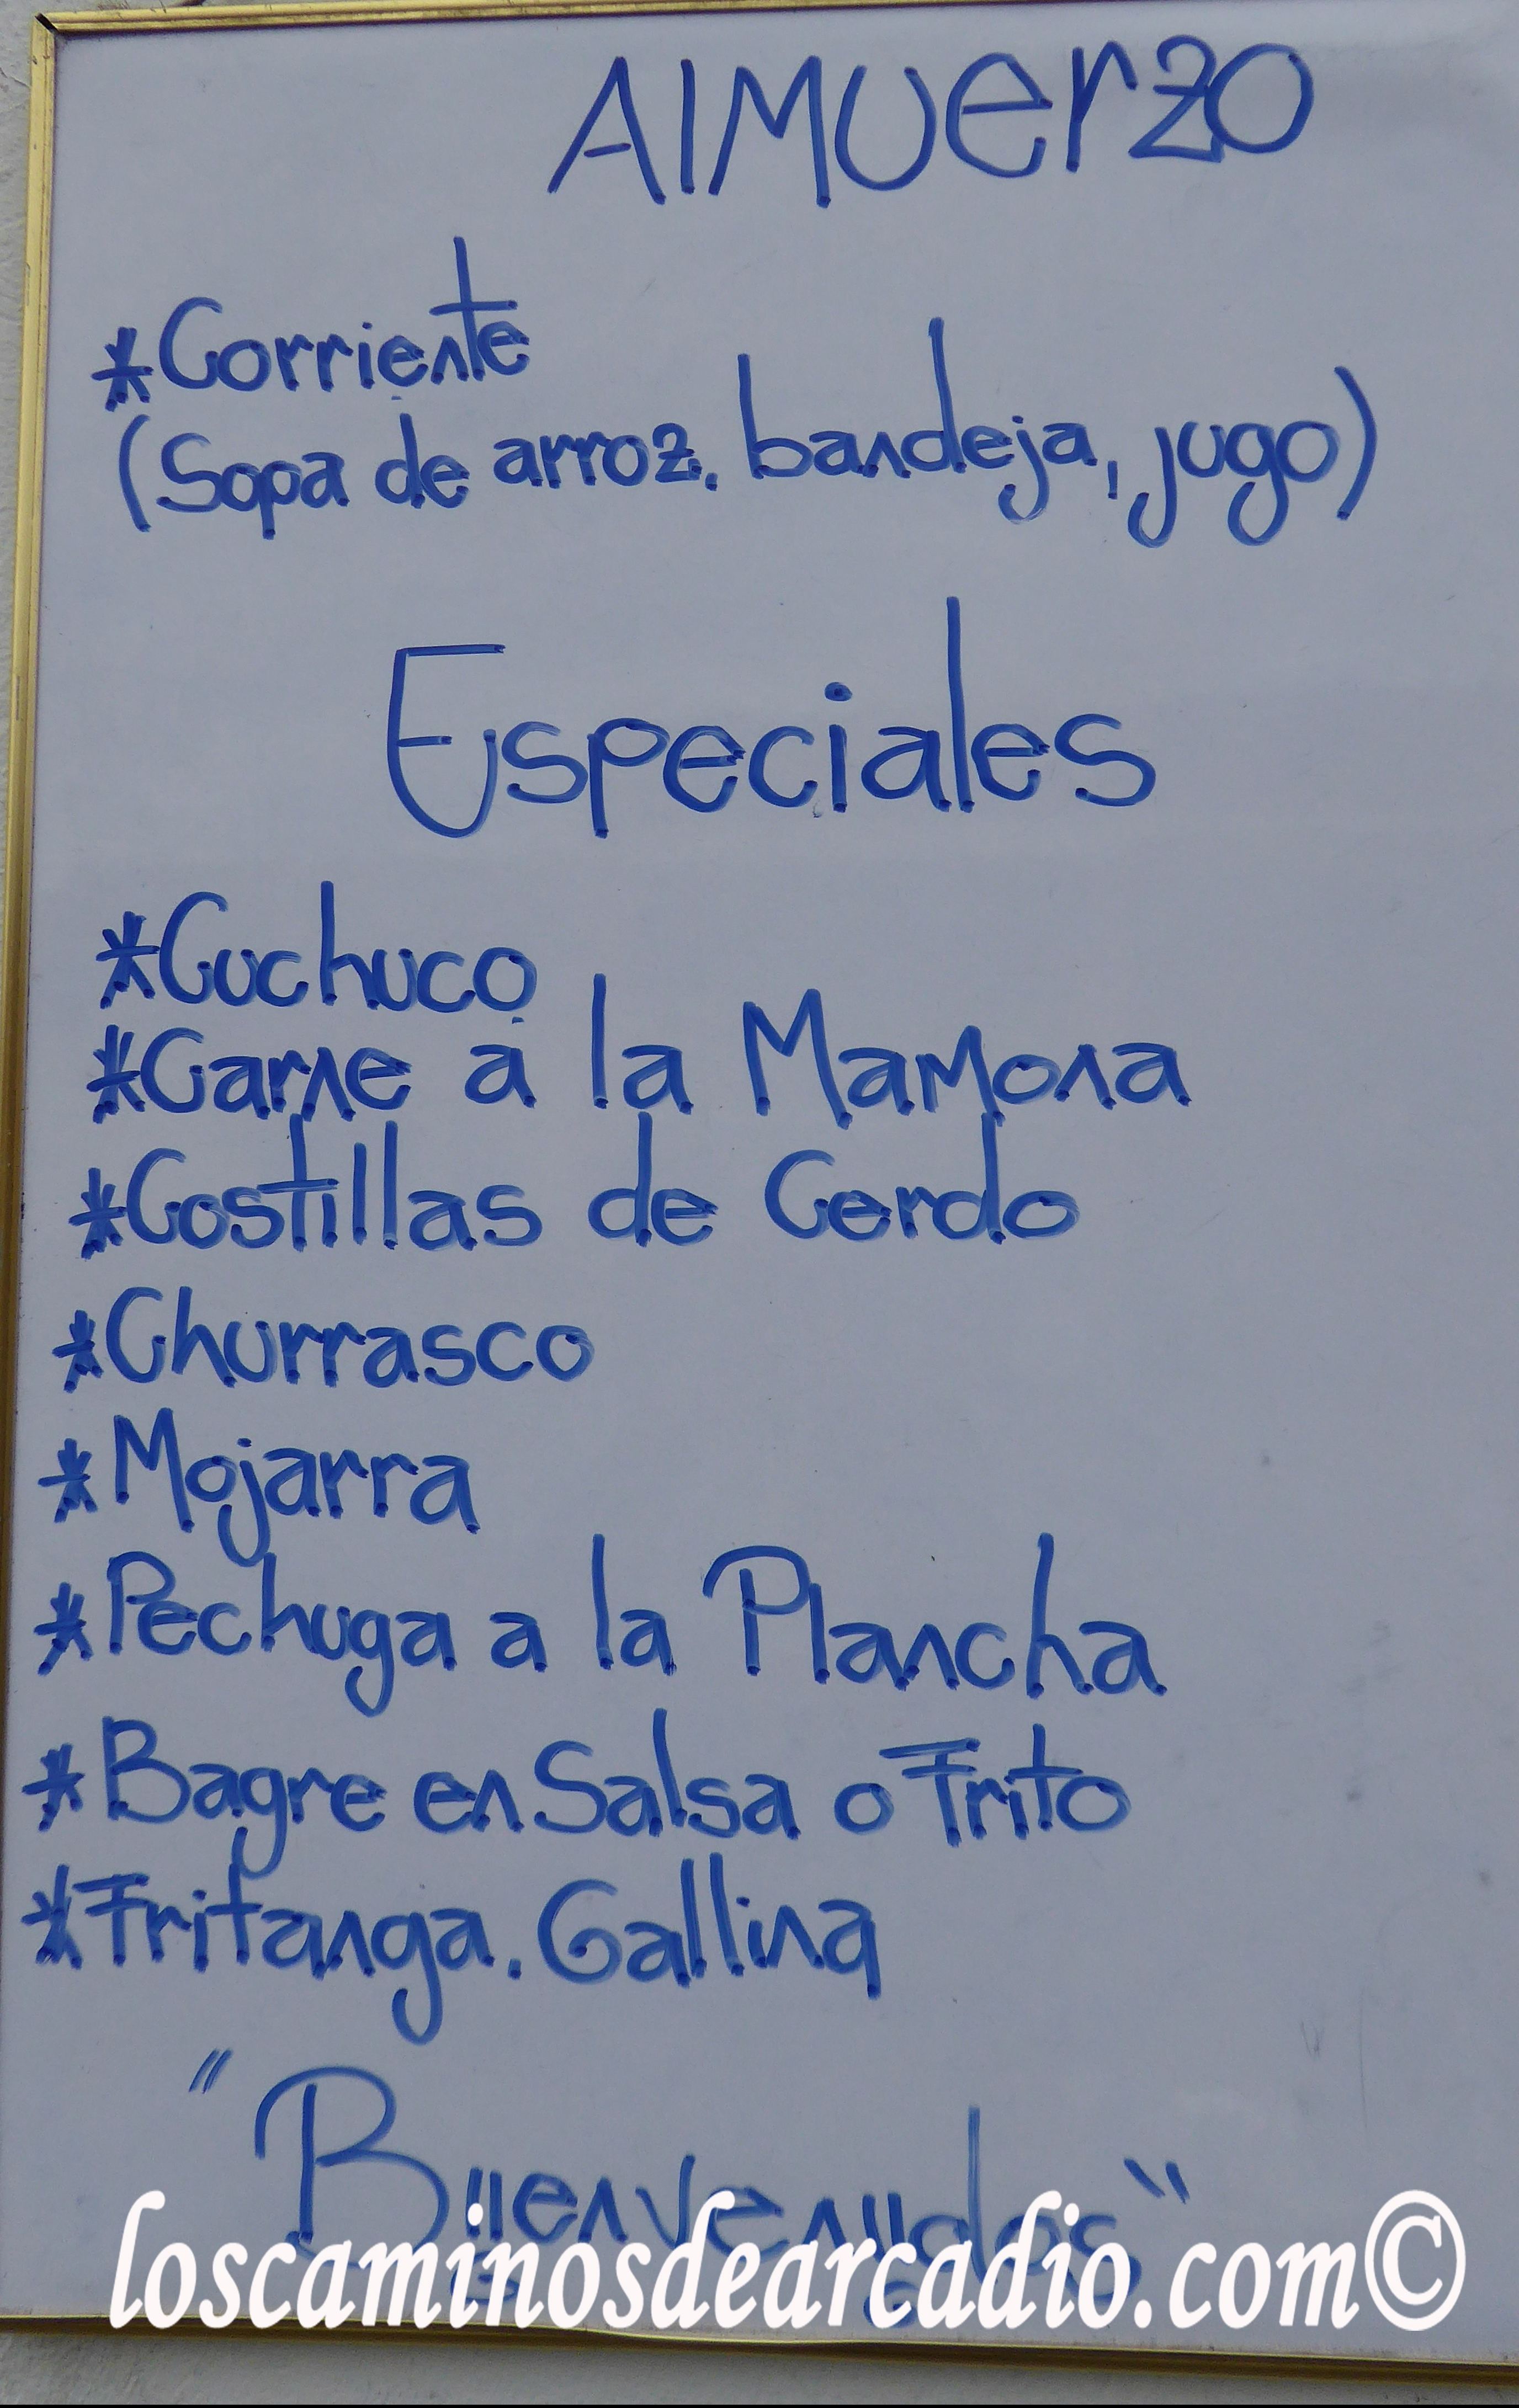 Almuerzo
*Corriente
(Sopa de arroz. bandeja, jugo)
Especiales
*Cuchuco
*Carne a la Mamona
*Costillas de Cerdo
*Churrasco
*Mojarra
*Pechuga a la Plancha
*Bagre en Salsa o Frito
*Fritanga. Gallina
"Bienvenidos"
loscaminosdearcadio.com©